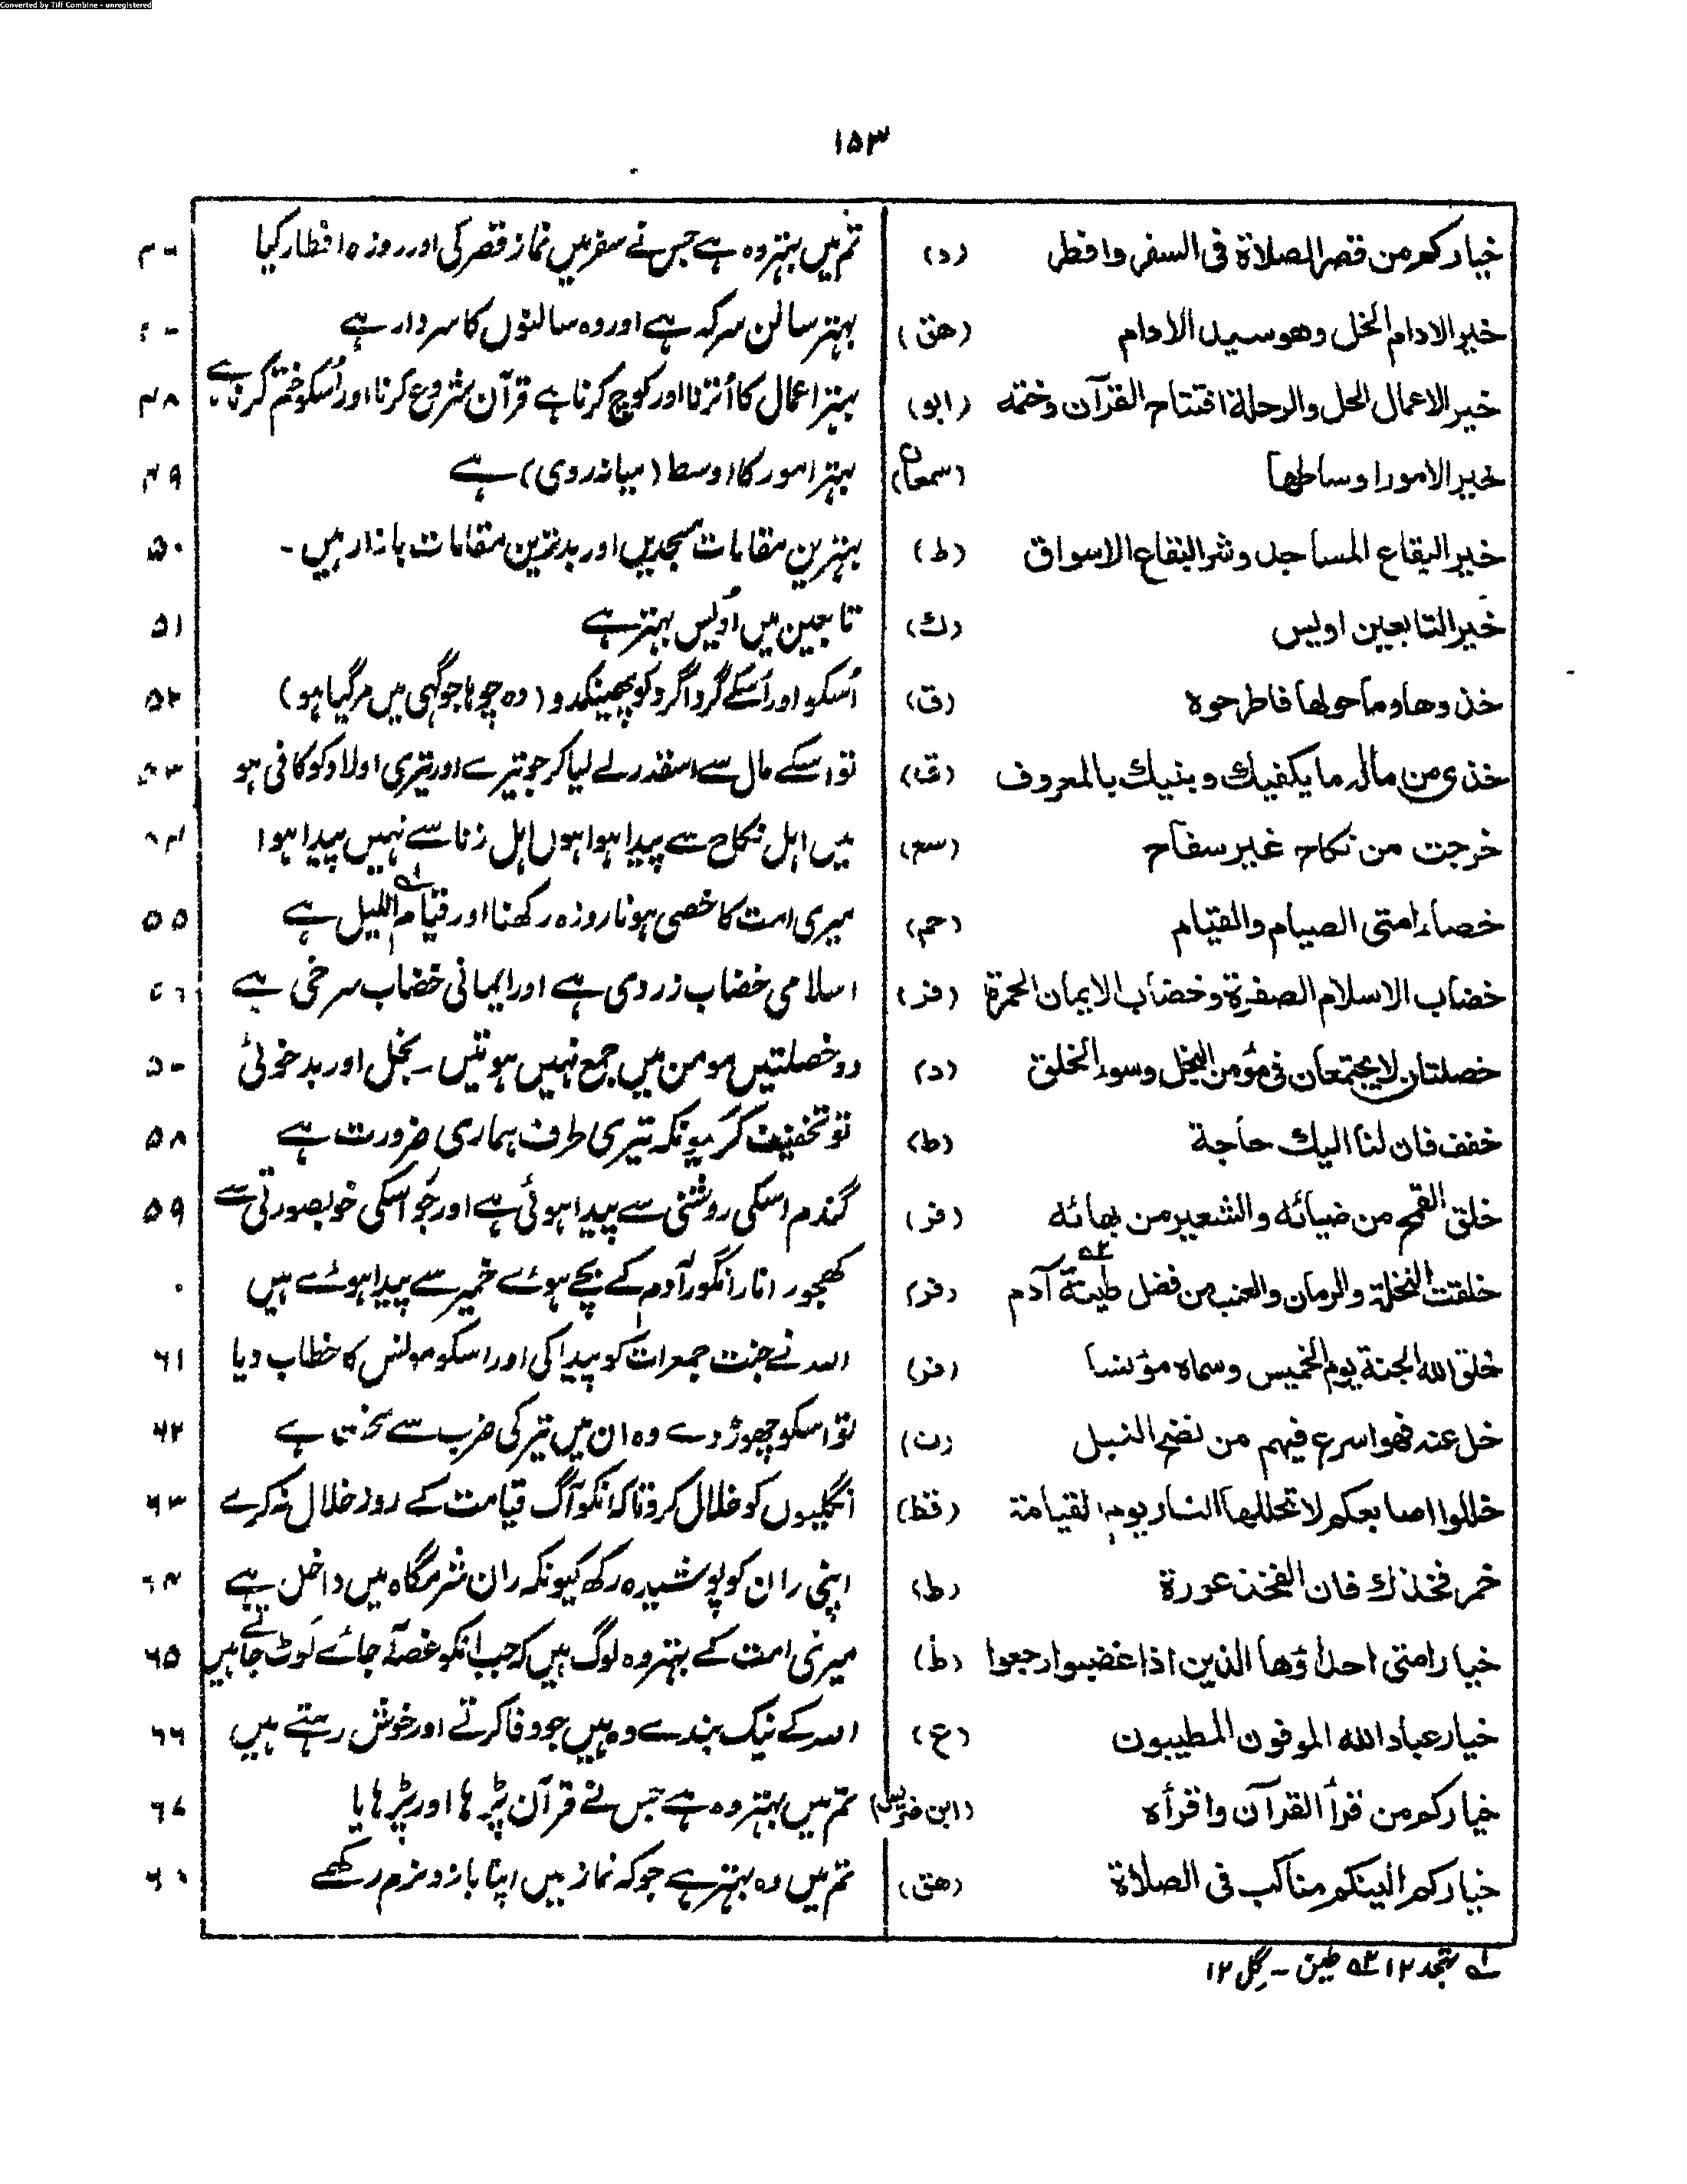 Converted by Tiff Combine - unregistered
۱۵۳
خیارکم من قصر الصلاۃ فی السفر وافطر (د) تم میں بہتر وہ ہے جس نے سفر میں نماز قصر کی اور روزہ افطار کیا
خیر الادام الخل وھو سید الادام (ھق) بہتر سالن سرکہ ہے اور وہ سالنوں کا سردار ہے
خیر الاعمال الحل والرحلۃ افتتاح القرآن وختمہ (ابو) بہتر اعمال کا اُترنا اور کوچ کرنا ہے قرآن شروع کرنا اور اُسکو ختم کرنا ہے ۴۸
خیر الامور اوساطھا (سمعان) بہتر امور کا اوسط (میانہ روی) ہے ۴۹
خیر البقاع المساجد وشر البقاع الاسواق (ط) بہترین مقامات مسجدیں اور بدترین مقامات بازار ہیں ۔ ۵۰
خیر التابعین اویس (ك) تابعین میں اُویس بہتر ہے ۵۱
خذوھا وما حولھا فاطرحوہ (ق) اُسکو اور اُسکے گرداگرد کو پھینکدو (وہ چوہا جو گھی میں مر گیا ہو) ۵۲
خذی من مالہ ما یکفیك وبنیك بالمعروف (ق) تو اسکے مال سے اسقدر لے لیا کر جو تیرے اور تیری اولاد کو کافی ہو ۵۳
خرجت من نکاح غیر سفاح (سع) میں اہل نکاح سے پیدا ہوا ہوں اہل زنا سے نہیں پیدا ہوا
خصاء امتی الصیام والقیام (حم) میری امت کا خصی ہونا روزہ رکھنا اور قیام اللیل ہے ۵۵
خضاب الاسلام الصفرۃ وخضاب الایمان الحمرۃ (فر) اسلامی خضاب زردی ہے اور ایمانی خضاب سرخی ہے
خصلتان لا یجتمعان فی مؤمن البخل وسوء الخلق (د) دو خصلتیں مومن میں جمع نہیں ہوتیں ۔ بخل اور بدخوئی
خفف فان لنا الیك حاجۃ (ط) تو تخفیف کر کیونکہ تیری طرف ہماری ضرورت ہے ۵۸
خلق القمح من ضیائہ والشعیر من بھائہ (فر) گندم اسکی روشنی سے پیدا ہوئی ہے اور جَو اسکی خوبصورتی سے ۵۹
خلقت النخلۃ والرمان والعنب من فضل طینۃ آدم (فر) کھجور انار انگور آدم کے بچے ہوئے خمیر سے پیدا ہوئے ہیں
خلق اللہ الجنۃ یوم الخمیس وسماہ مؤنسا (فر) اللہ نے جنت جمعرات کو پیدا کی اور اسکو مونس کا خطاب دیا ۶۱
خل عنہ فھو اسرع فیھم من نضح النبل (ن) تو اسکو چھوڑ دے وہ ان میں تیر کی ضرب سے سخت ہے ۶۲
خللوا اصابعکم لا تخللھا النار یوم القیامۃ (قط) انگلیوں کو خلال کرو تاکہ انکو آگ قیامت کے روز خلال نہ کرے ۶۳
خمر فخذك فان الفخذ عورۃ (ط) اپنی ران کو پوشیدہ رکھ کیونکہ ران شرمگاہ میں داخل ہے ۶۴
خیار امتی احداؤھا الذین اذا غضبوا رجعوا (ط) میری امت کے بہتر وہ لوگ ہیں کہ جب انکو غصہ آ جائے لَوٹ جاتے ہیں ۶۵
خیار عباد اللہ الموفون المطیبون (ع) اللہ کے نیک بندے وہ ہیں جو وفا کرتے اور خوش رہتے ہیں ۶۶
خیارکم من قرأ القرآن واقرأہ (ابن ضریس) تم میں بہتر وہ ہے جس نے قرآن پڑہا اور پڑہایا ۶۷
خیارکم الینکم مناکب فی الصلاۃ (ھق) تم میں وہ بہتر ہے جو کہ نماز میں اپنا بازو نرم رکھے
۱ تہجد ۱۲ ۲ طین ۔ گِل ۱۲